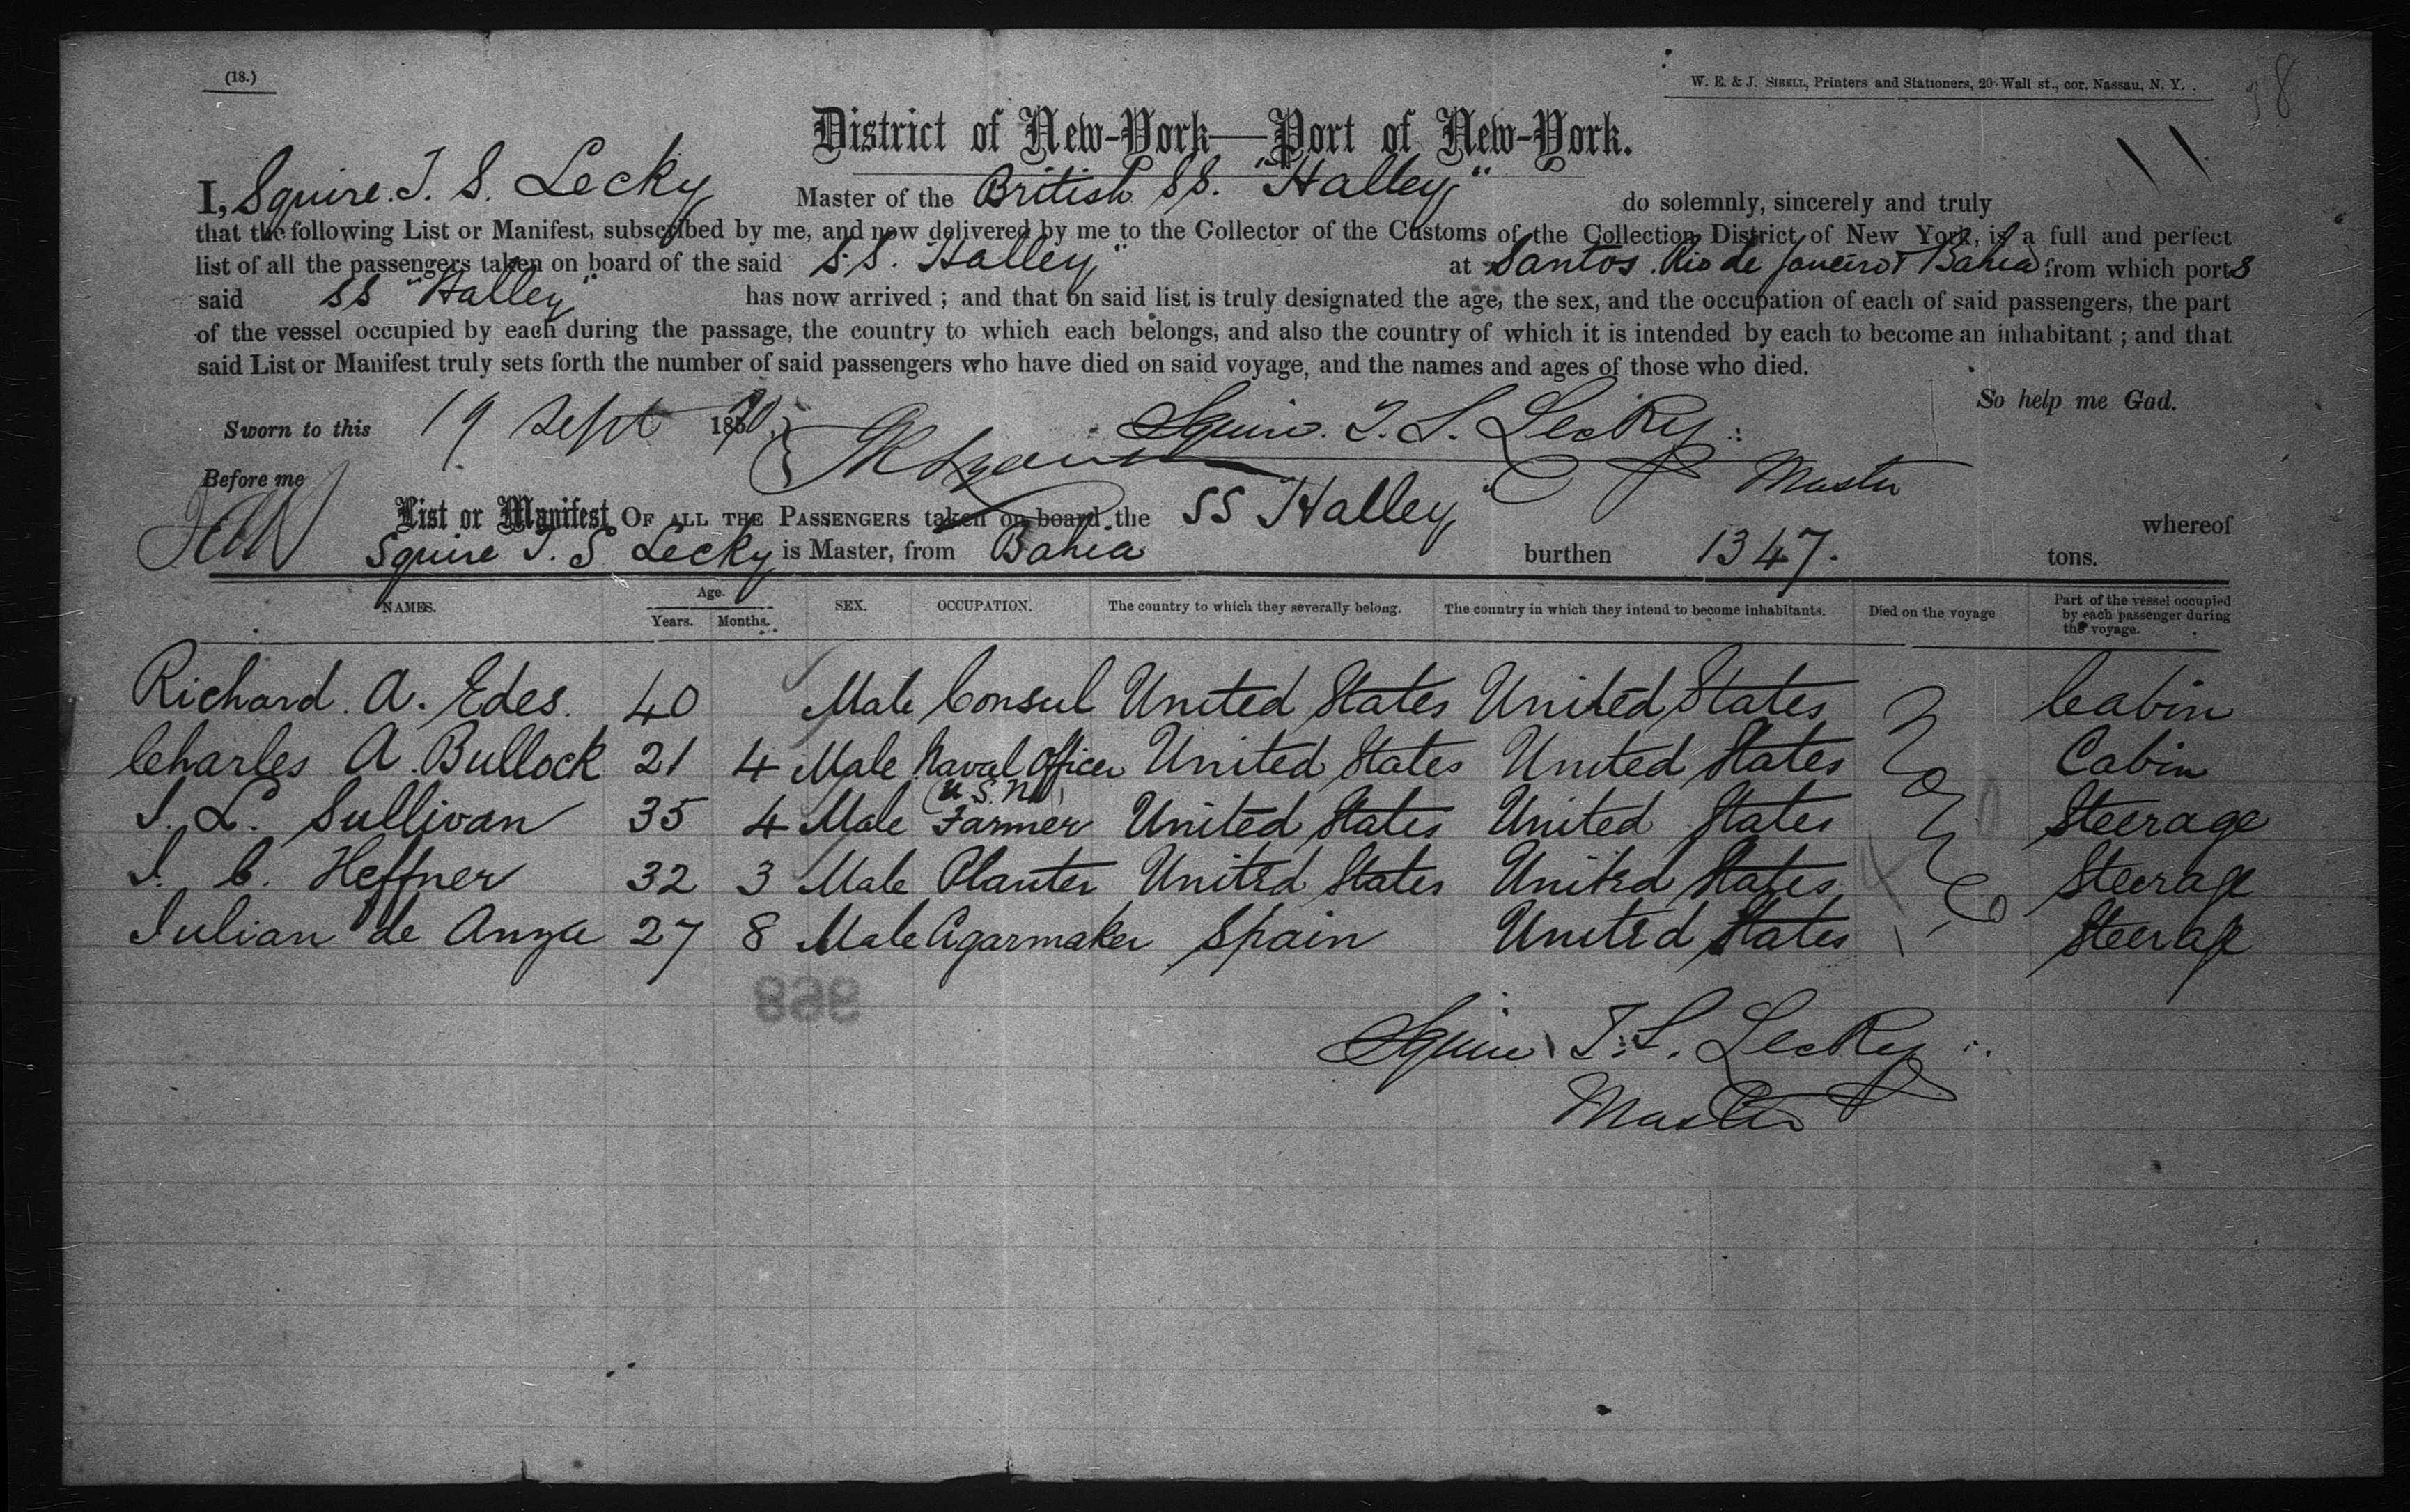 (18.)
W. E. & J. SIBELL, Printers and Stationers, 20 Wall st., cor. Nassau, N. Y.
38
District of New-York—Port of New-York.
I, Squire. T. S. Lecky Master of the British SS. "Halley" do solemnly, sincerely and truly
that the following List or Manifest, subscribed by me, and now delivered by me to the Collector of the Customs of the Collection District of New York, is a full and perfect
list of all the passengers taken on board of the said S.S. "Halley" at Santos. Rio de Janeiro & Bahia from which ports
said SS "Halley" has now arrived ; and that on said list is truly designated the age, the sex, and the occupation of each of said passengers, the part
of the vessel occupied by each during the passage, the country to which each belongs, and also the country of which it is intended by each to become an inhabitant ; and that
said List or Manifest truly sets forth the number of said passengers who have died on said voyage, and the names and ages of those who died.
So help me God.
Sworn to this 19 Sept 1870. Squire. T. S. Lecky
Before me Master
List or Manifest OF ALL THE PASSENGERS taken on board the SS "Halley" whereof
Squire T. S. Lecky is Master, from Bahia burthen 1347. tons.
NAMES. Age. Years. Months. SEX. OCCUPATION. The country to which they severally belong. The country in which they intend to become inhabitants. Died on the voyage Part of the vessel occupied by each passenger during the voyage.
Richard. A. Edes. 40 Male Consul United States United States Cabin
Charles A. Bullock 21 4 Male Naval Officer United States United States Cabin
(U.S.N.)
J. L. Sullivan 35 4 Male Farmer United States United States Steerage
J. C. Heffner 32 3 Male Planter United States United States Steerage
Julian de Anza 27 8 Male Cigarmaker Spain United States Steerage
None
898
Squire T. S. Lecky
Master